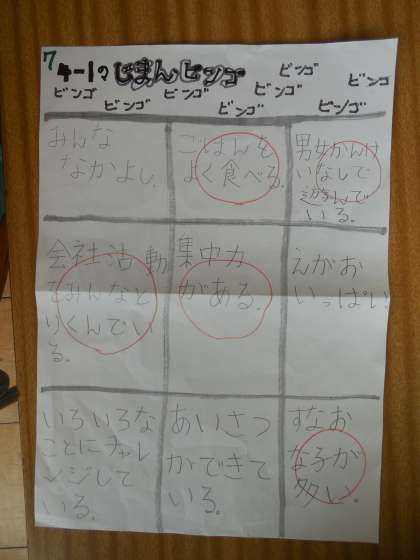 7
4-1のじまんビンゴ
ビンゴ
ビンゴ
ビンゴ
ビンゴ
ビンゴ
ビンゴ
ビンゴ
ビンゴ
みんな
なかよし.
ごはんを
よく食べる.
男女かんけ
いなしで
遊んで
いる.
会社活動
をみんなと
りくんでい
る.
集中力
がある.
えがお
いっぱい
いろいろな
ことにチャレ
ンジして
いる.
あいさつ
がができて
いる.
すなお
な子が
多い.